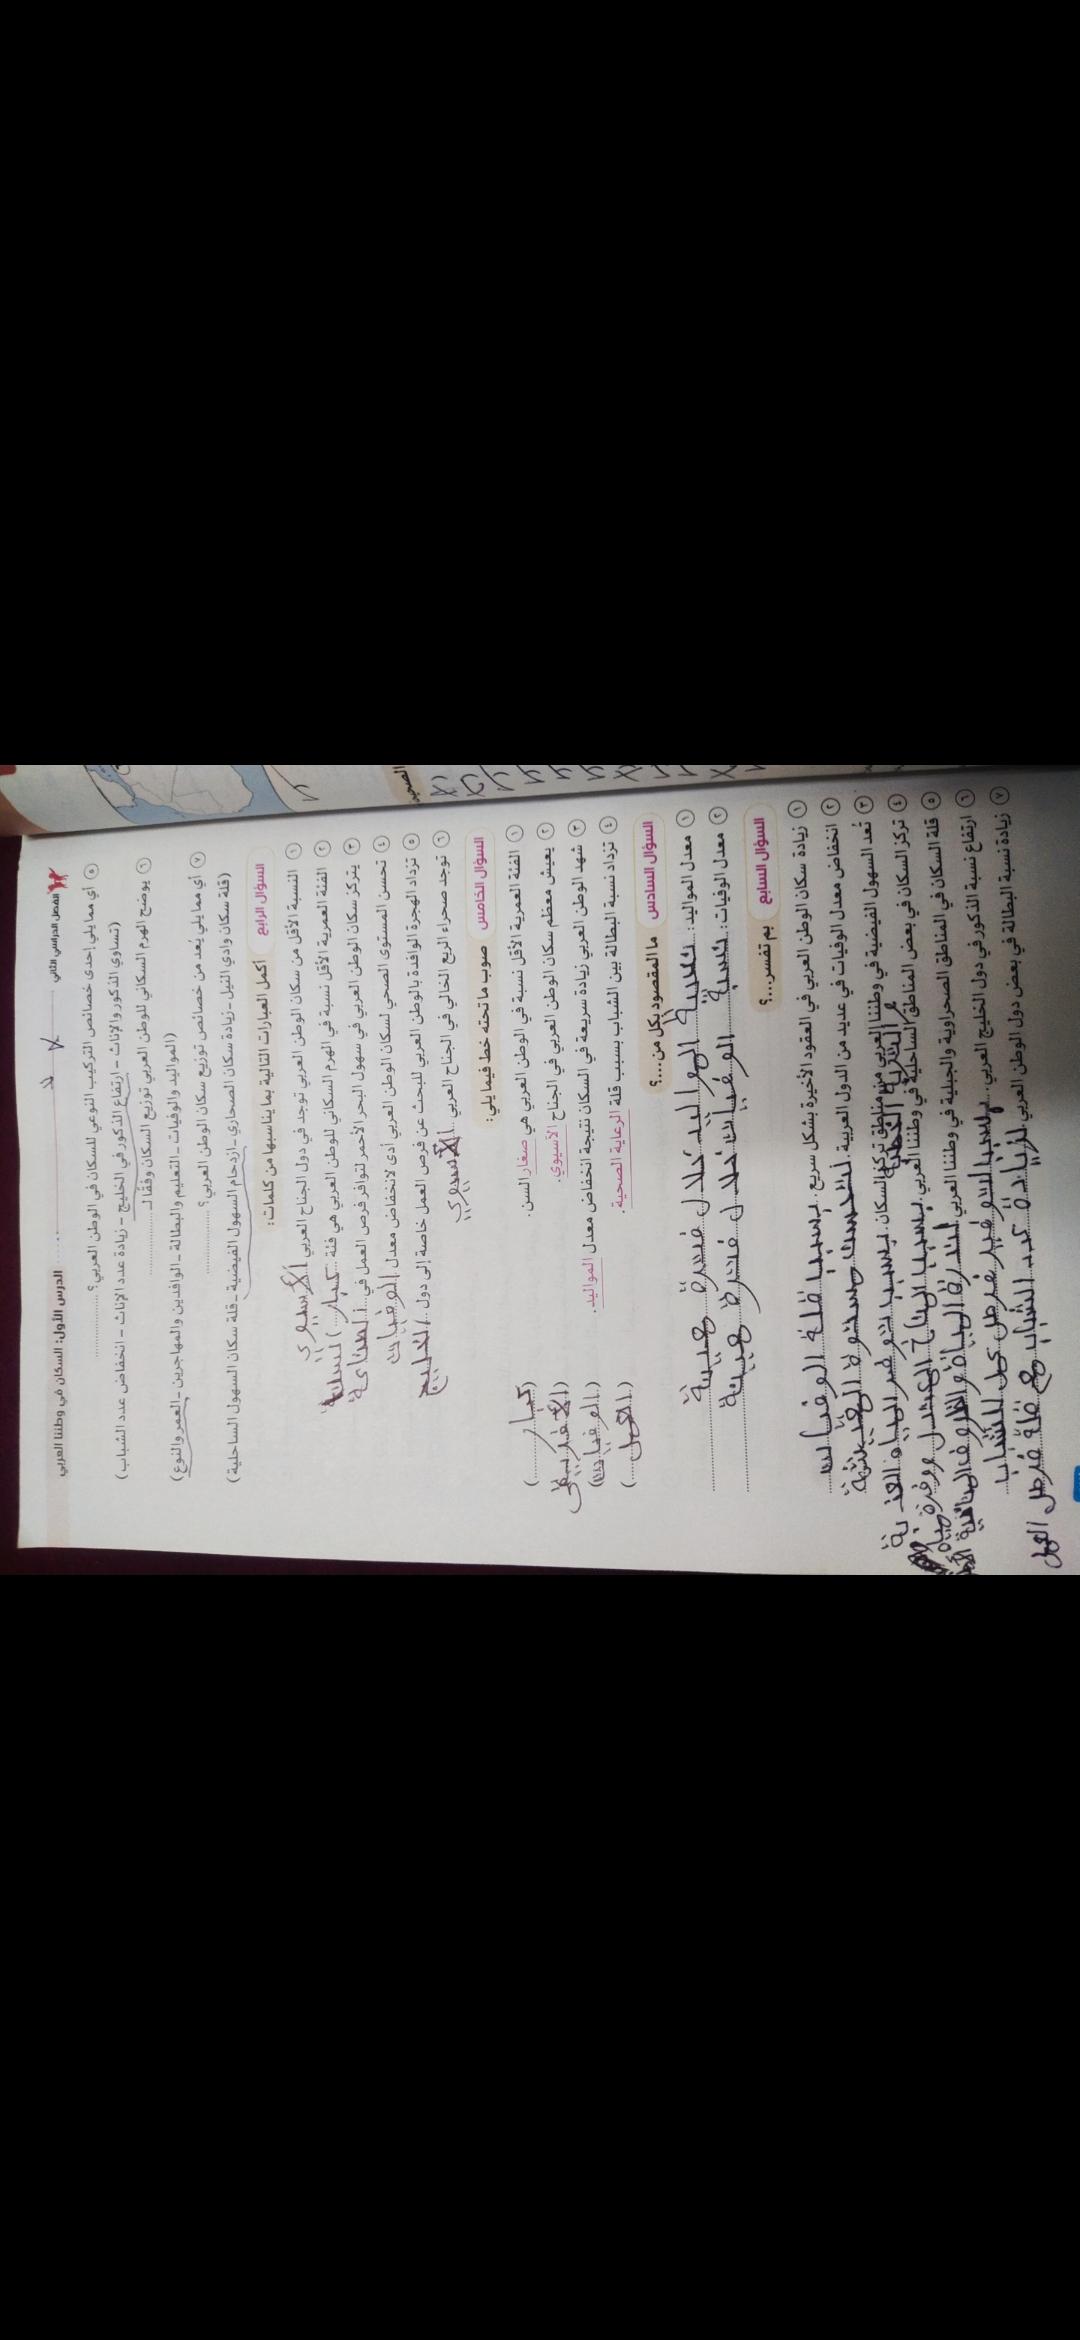 الدرس الأول: السكان في وطننا العربي
الفصل الدراسي الثاني
٥ أي مما يلي إحدى خصائص التركيب النوعي للسكان في الوطن العربي؟
(تساوي الذكور والإناث - ارتفاع الذكور في الخليج - زيادة عدد الإناث - انخفاض عدد الشباب)
٦ يوضح الهرم السكاني للوطن العربي توزيع السكان وفقًا لـ
(المواليد والوفيات - التعليم والبطالة - الوافدين والمهاجرين - العمر والنوع)
٧ أي مما يلي يُعد من خصائص توزيع سكان الوطن العربي؟
(قلة سكان وادي النيل - زيادة سكان الصحاري - ازدحام السهول الفيضية - قلة سكان السهول الساحلية)
السؤال الرابع أكمل العبارات التالية بما يناسبها من كلمات:
١ النسبة الأقل من سكان الوطن العربي توجد في دول الجناح العربي الآسيوي
٢ الفئة العمرية الأقل نسبة في الهرم السكاني للوطن العربي هي فئة كبار السن
٣ يتركز سكان الوطن العربي في سهول البحر الأحمر لتوافر فرص العمل في
٤ تحسن المستوى الصحي لسكان الوطن العربي أدى لانخفاض معدل الوفيات
٥ تزداد الهجرة الوافدة بالوطن العربي للبحث عن فرص العمل خاصة إلى دول الخليج
٦ توجد صحراء الربع الخالي في الجناح العربي الآسيوي
السؤال الخامس صوب ما تحته خط فيما يلي:
١ الفئة العمرية الأقل نسبة في الوطن العربي هي صغار السن. (كبار)
٢ يعيش معظم سكان الوطن العربي في الجناح الآسيوي. (الأفريقي)
٣ شهد الوطن العربي زيادة سريعة في السكان نتيجة انخفاض معدل المواليد. (الوفيات)
٤ تزداد نسبة البطالة بين الشباب بسبب قلة الرعاية الصحية. (العمل)
السؤال السادس ما المقصود بكل من....؟
١ معدل المواليد: نسبة المواليد خلال فترة معينة
٢ معدل الوفيات: نسبة الوفيات خلال فترة معينة
السؤال السابع بم تفسر...؟
١ زيادة سكان الوطن العربي في العقود الأخيرة بشكل سريع. بسبب قلة الوفيات
٢ انخفاض معدل الوفيات في عديد من الدول العربية. لتحسن مستوى المعيشة
٣ تُعد السهول الفيضية في وطننا العربي من مناطق تركز السكان. بسبب توفير المياه العذبة
٤ تركز السكان في بعض المناطق الساحلية في وطننا العربي. بسبب المناخ المعتدل ووفرة
٥ قلة السكان في المناطق الصحراوية والجبلية في وطننا العربي. لندرة المياه والظروف المناخية
٦ ارتفاع نسبة الذكور في دول الخليج العربي. بسبب توفير فرص عمل للشباب
٧ زيادة نسبة البطالة في بعض دول الوطن العربي. لزيادة عدد الشباب مع قلة فرص العمل